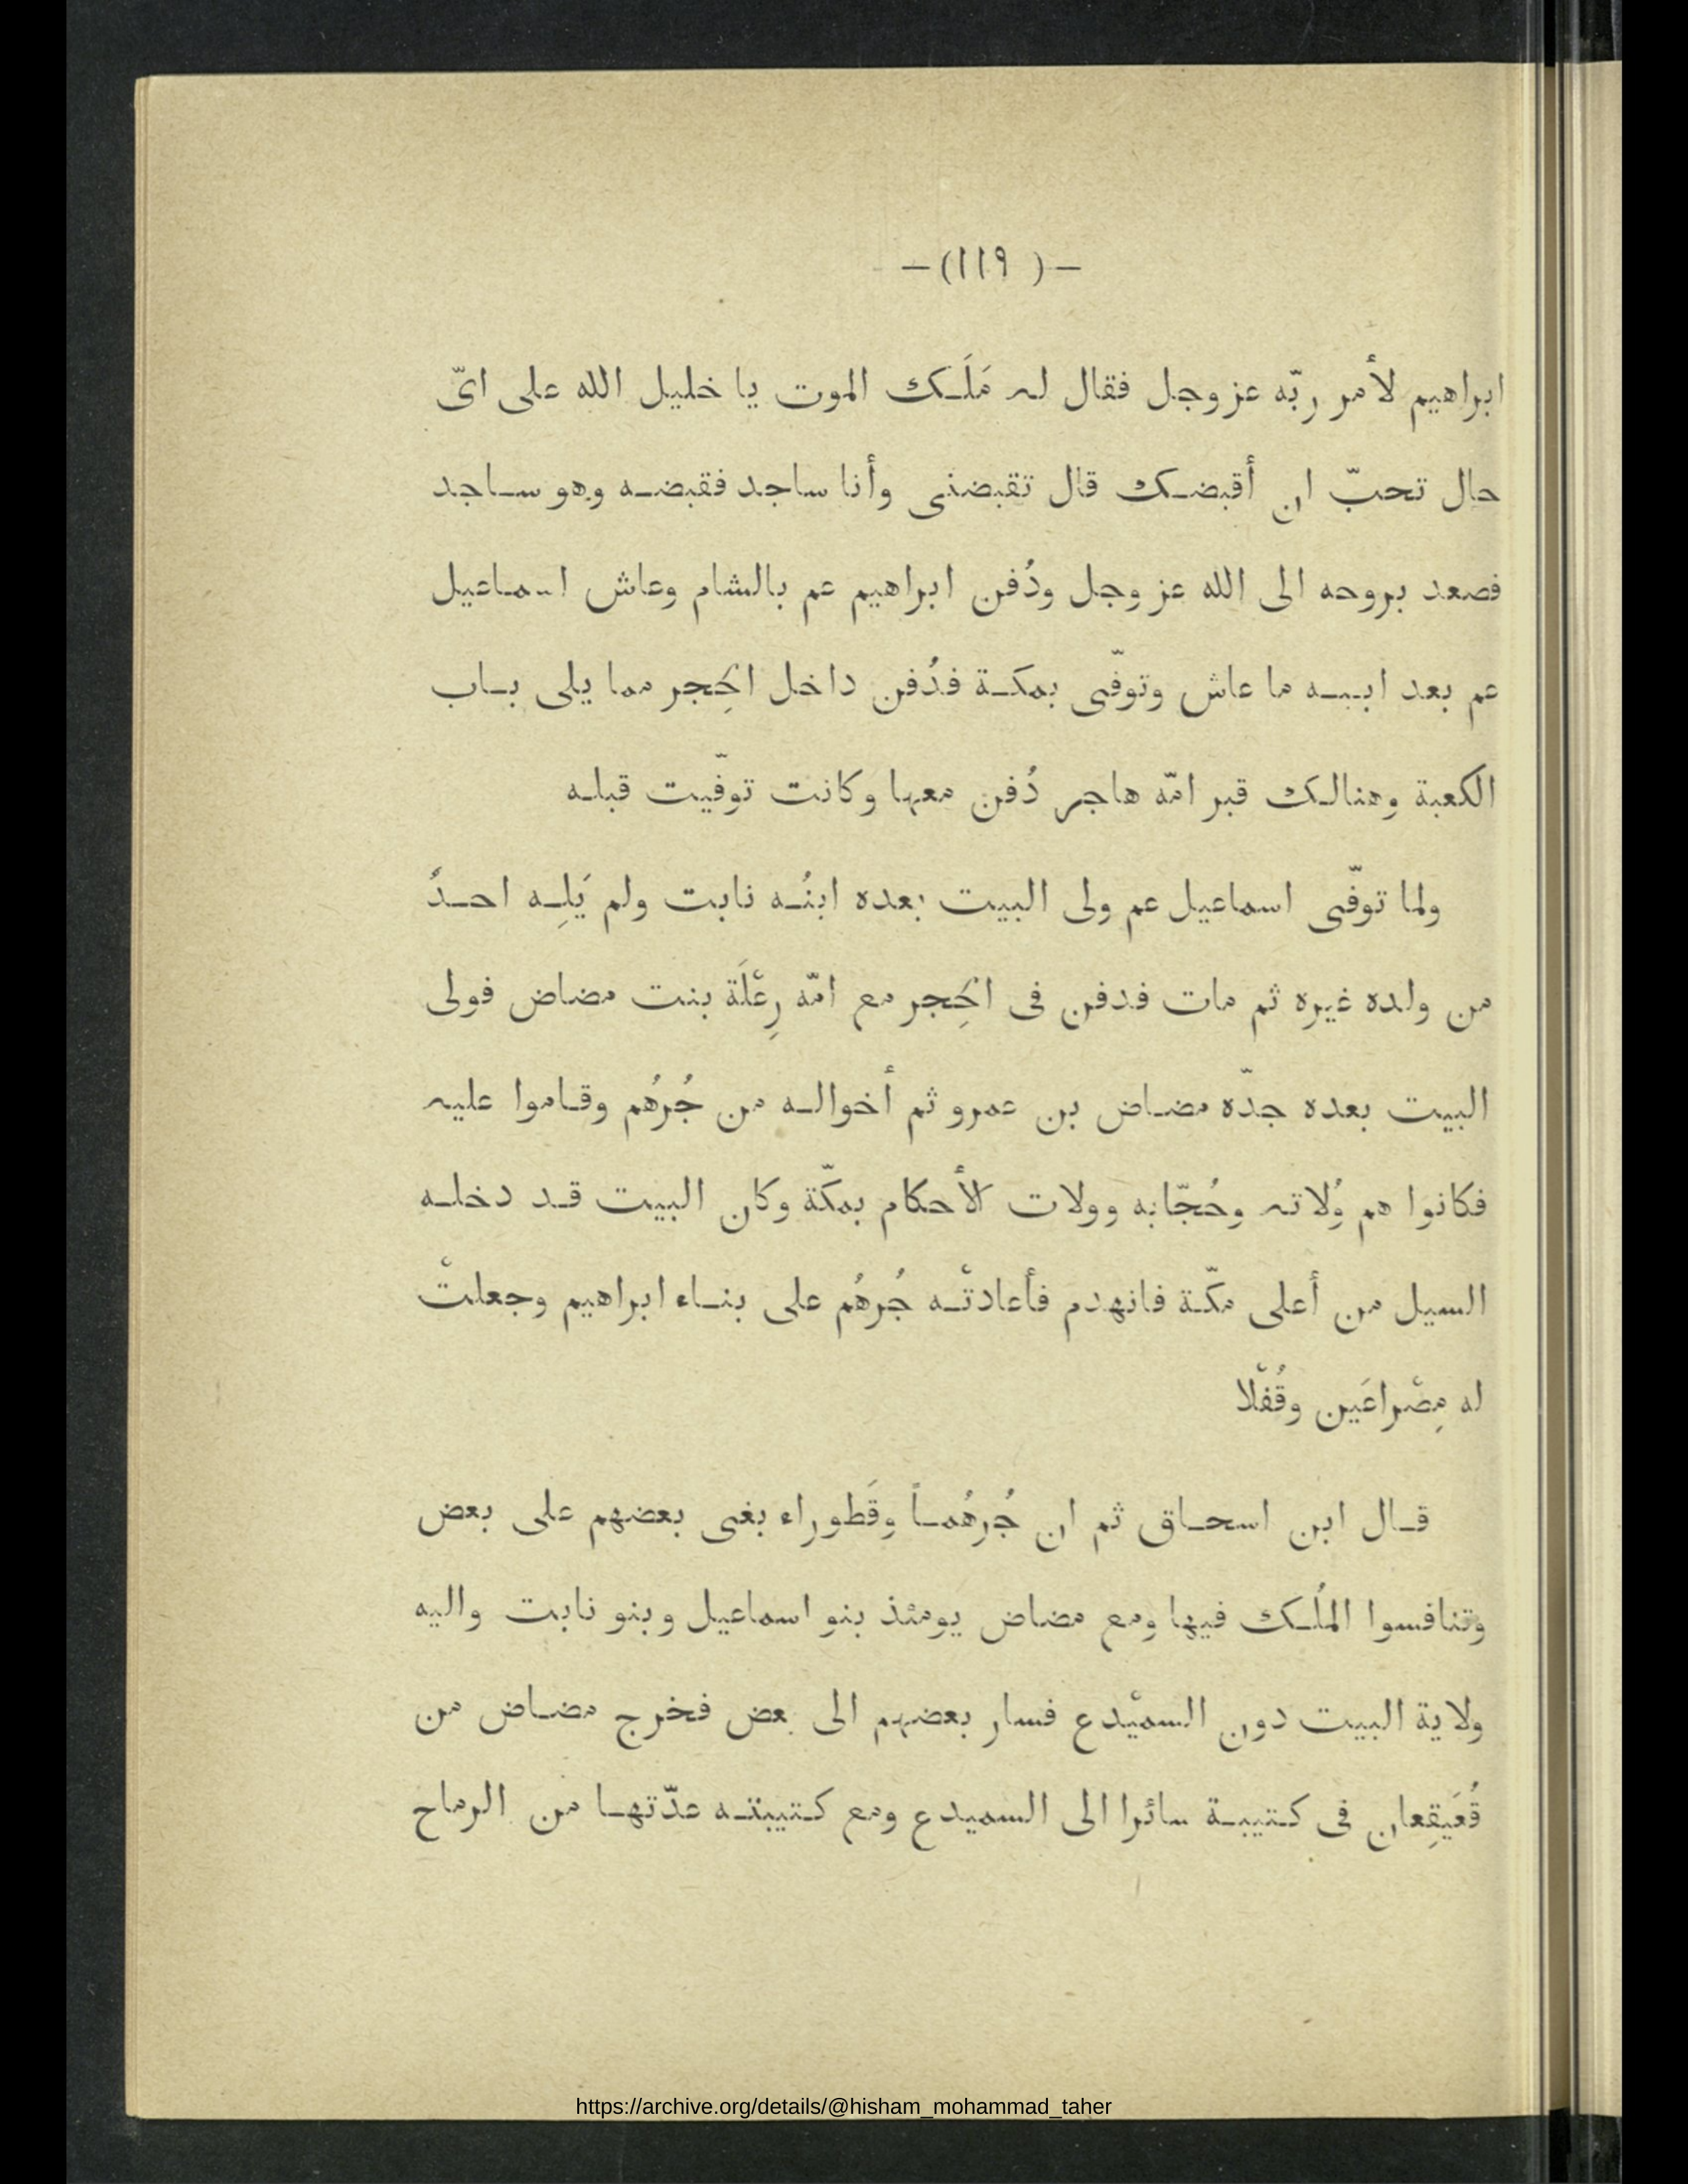 — (١١٩) —
ابراهيم لأمر ربّه عز وجل فقال له مَلَك الموت يا خليل الله على اىّ
حال تحبّ ان أقبضك قال تقبضنى وأنا ساجد فقبضه وهو ساجد
فصعد بروحه الى الله عز وجل ودُفن ابراهيم عم بالشام وعاش اسماعيل
عم بعد ابيه ما عاش وتوفّى بمكة فدُفن داخل الحِجر مما يلى باب
الكعبة وهنالك قبر امّه هاجر دُفن معها وكانت توفّيت قبله
ولما توفّى اسماعيل عم ولى البيت بعده ابنُه نابت ولم يَلِه احدُ
من ولده غيره ثم مات فدفن فى الحِجر مع امّه رِعْلَة بنت مضاض فولى
البيت بعده جدّه مضاض بن عمرو ثم أخواله من جُرهُم وقاموا عليه
فكانوا هم وُلاته وحُجّابه وولات الأحكام بمكّة وكان البيت قد دخله
السيل من أعلى مكّة فانهدم فأعادتْه جُرهُم على بناء ابراهيم وجعلتْ
له مِصْراعَين وقُفْلا
قال ابن اسحاق ثم ان جُرهُماً وقَطوراء بغى بعضهم على بعض
وتنافسوا المُلك فيها ومع مضاض يومئذ بنو اسماعيل وبنو نابت واليه
ولاية البيت دون السميْدع فسار بعضهم الى بعض فخرج مضاض من
قُعَيقِعان فى كتيبة سائرا الى السميدع ومع كتيبته عدّتها من الرماح
https://archive.org/details/@hisham_mohammad_taher